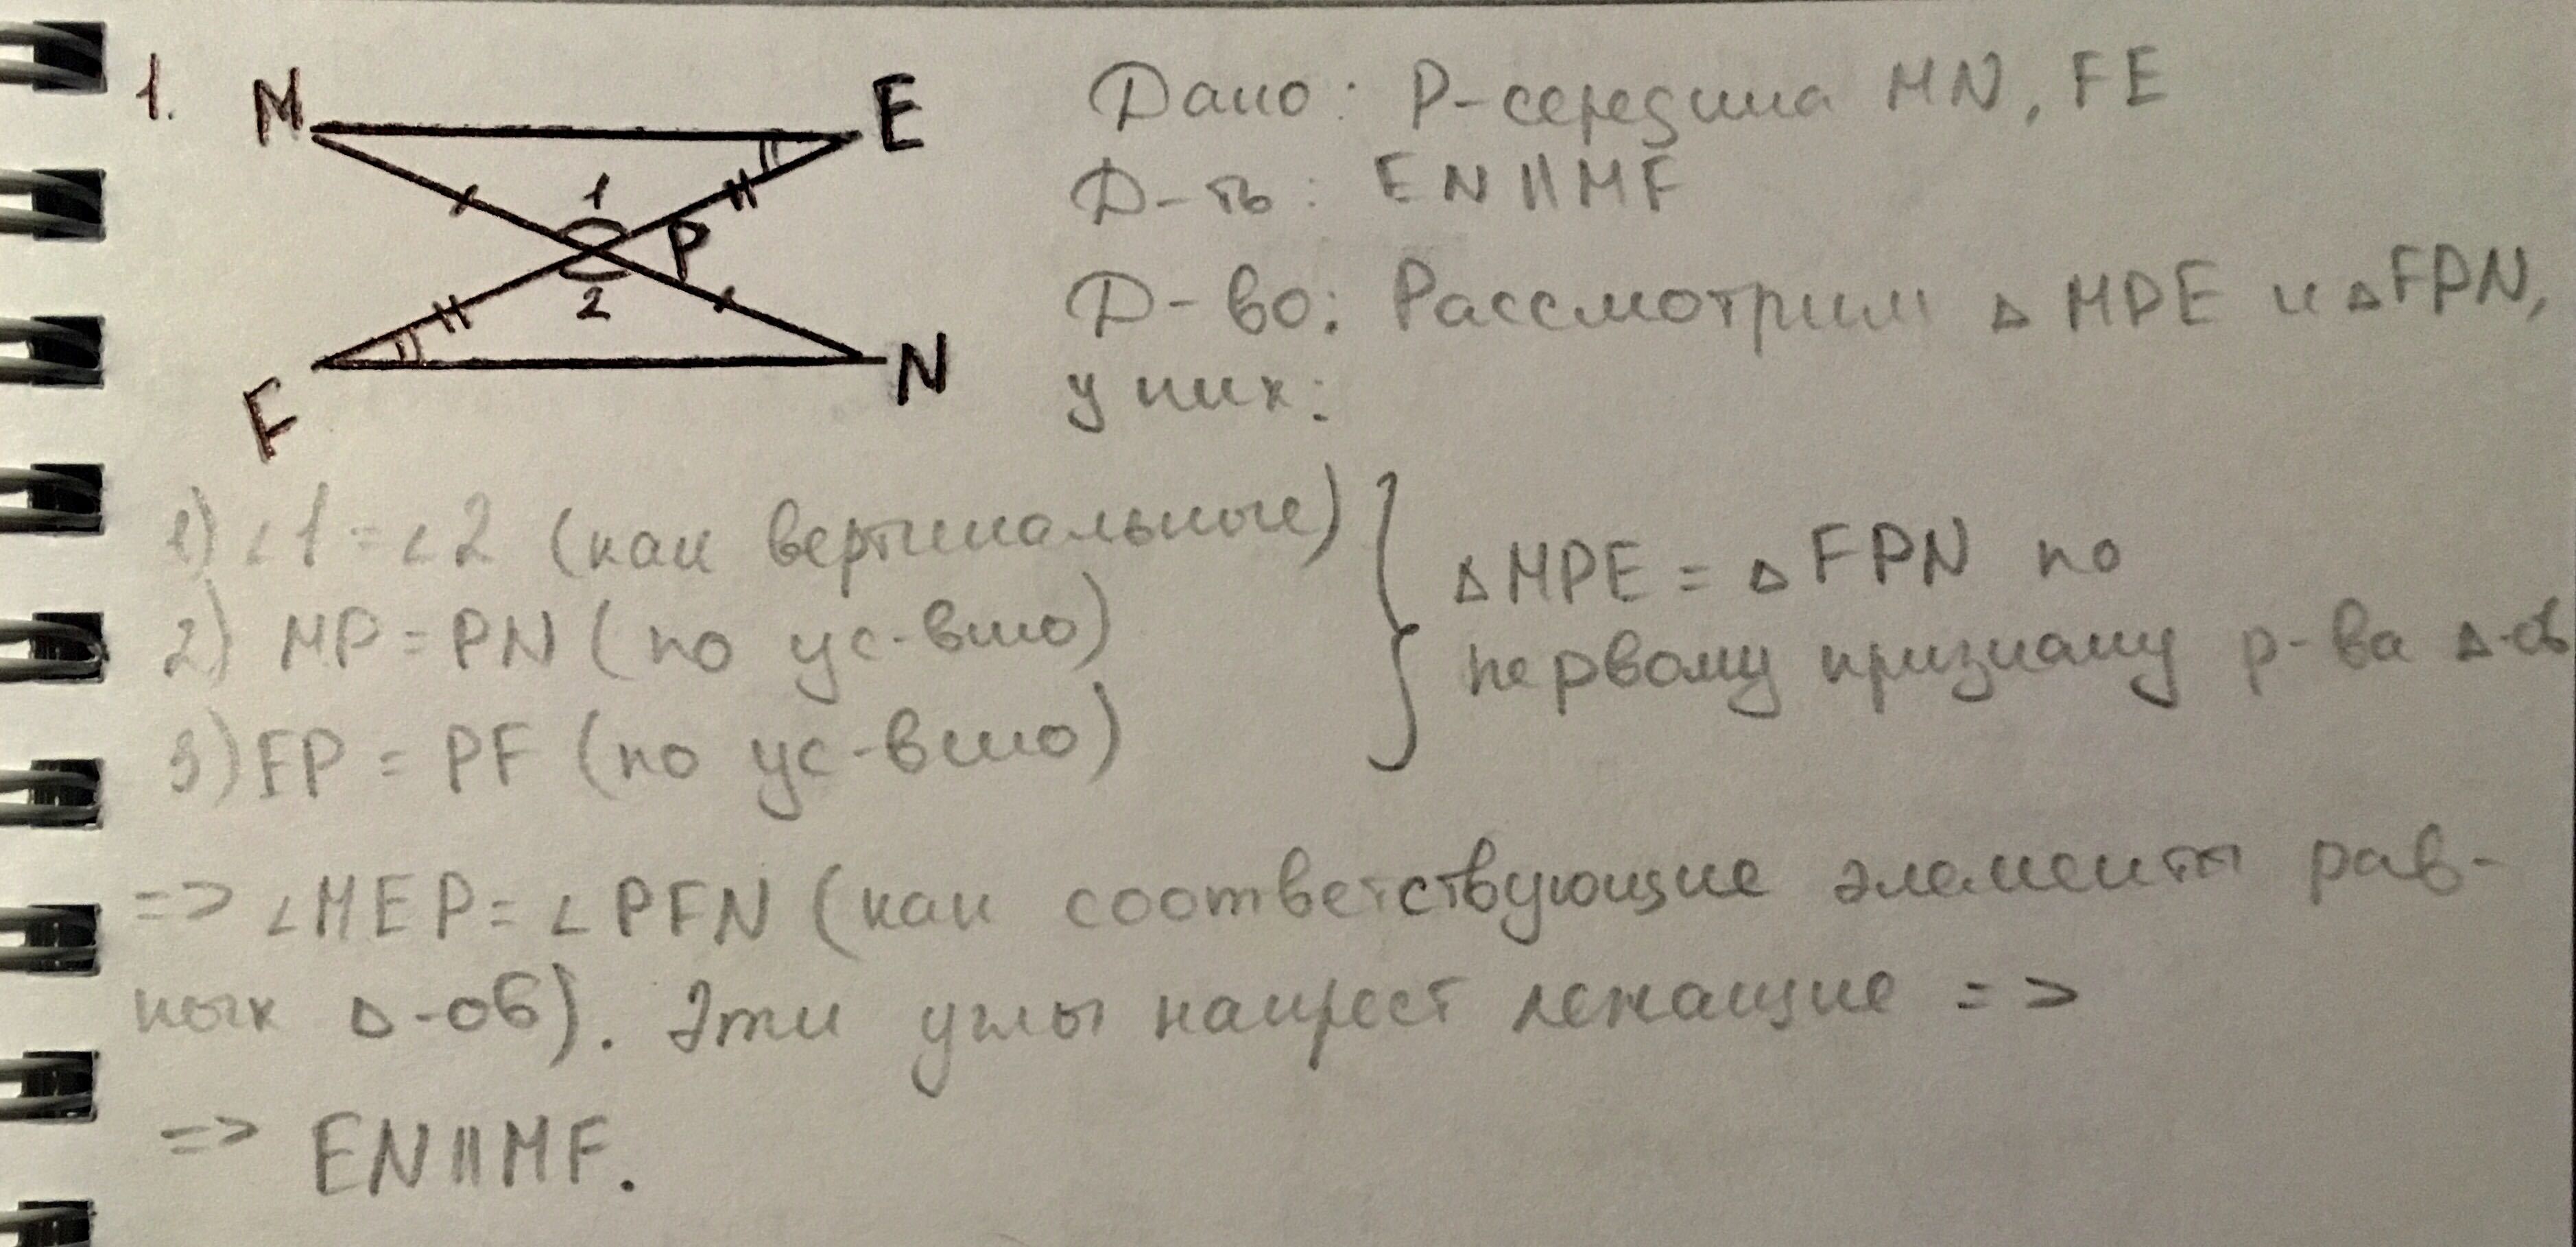 1.
M E
1
P
2
F N
Дано: P-середина MN, FE
Д-ть: EN||MF
Д-во: Рассмотрим △MPE и △FPN,
у них:
1) ∠1=∠2 (как вертикальные)
2) MP=PN (по ус-вию)
3) FP=PF (по ус-вию)
△MPE = △FPN по
первому признаку р-ва △-ов
=> ∠MEP=∠PFN (как соответствующие элементы рав-
ных △-ов). Эти углы накрест лежащие =>
=> EN||MF.